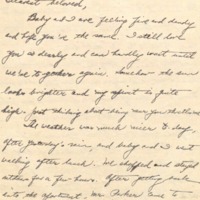 Dearest Beloved,
Baby and I are feeling fine and dandy
and hope you're the same. I still love
you so dearly and can hardly wait until
we're together again. Somehow the sun
looks brighter and my spirit is quite
high. Just thinking about being near you
The weather was much nicer to-day,
after yesterday's rain, and baby and I went
walking after lunch. We shopped and stayed
outside for a few hours. After getting
into the apartment, Mr. came to